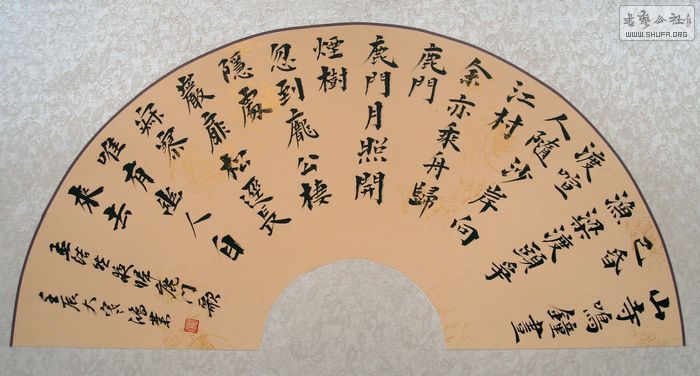 山寺鳴鐘晝
已昏
漁梁渡頭爭
渡喧
人隨沙岸向
江村
余亦乘舟歸
鹿門
鹿門月照開
煙樹
忽到龐公棲
隱處
巖扉松逕長
寂寥
唯有幽人自
來去
孟浩然夜歸鹿門歌
壬辰大寒鴻業
书艺公社
WWW.SHUFA.ORG